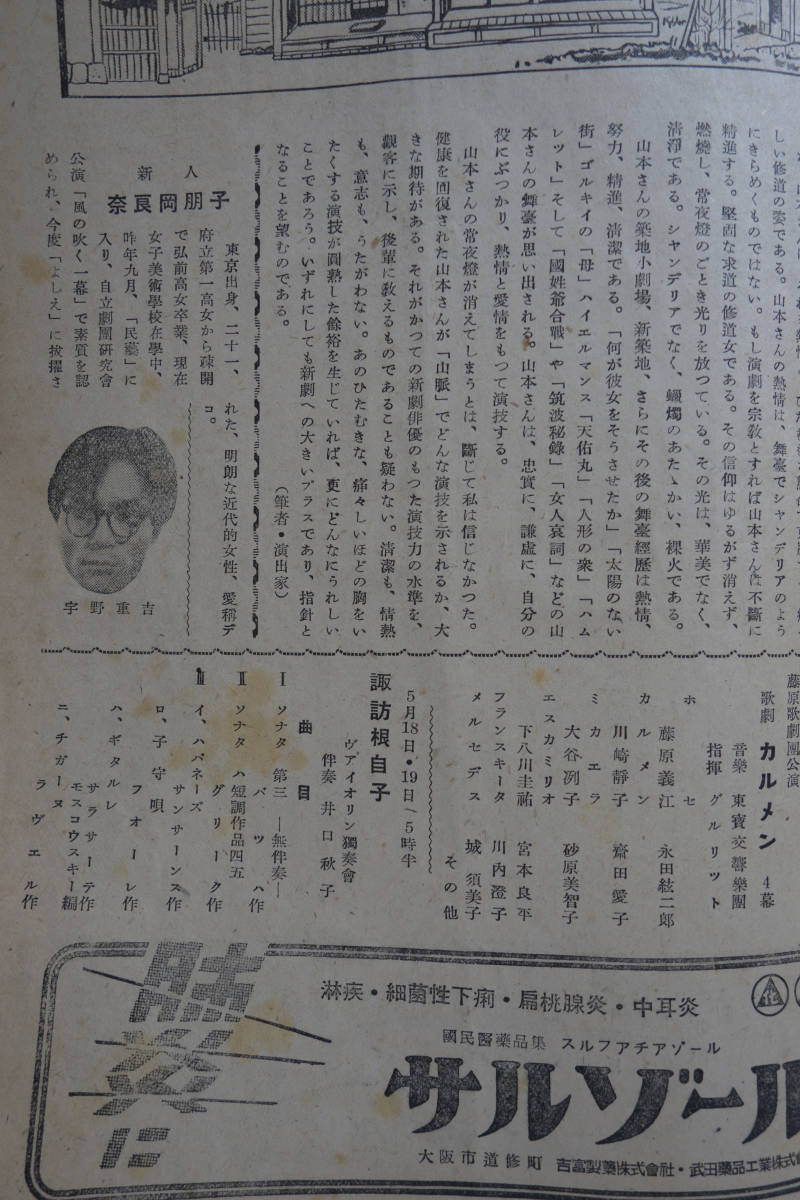 しい修道の姿である。山本さんの熱情は、舞臺でシャンデリアのよう
にきらめくものではない。もし演劇を宗教とすれば山本さんは不斷に
精進する。堅固な求道の修道女である。その信仰はゆるがず消えず、
燃焼し、常夜燈のごとき光りを放つている。その光は、華美でなく、
清淨である。シャンデリアでなく、蠟燭のあたゝかい、裸火である。
山本さんの築地小劇場、新築地、さらにその後の舞臺經歷は熱情、
努力、精進、清潔である。「何が彼女をそうさせたか」「太陽のない
街」ゴルキイの「母」ハイエルマンス「天佑丸」「人形の衆」「ハム
レツト」そして「國姓爺合戰」や「筑波秘錄」「女人哀詞」などの山
本さんの舞臺が思い出される。山本さんは、忠實に、謙虛に、自分の
役にぶつかり、熱情と愛情をもつて演技する。
山本さんの常夜燈が消えてしまうとは、斷じて私は信じなかつた。
健康を回復された山本さんが「山脈」でどんな演技を示されるか、大
きな期待がある。それがかつての新劇俳優のもつた演技力の水準を、
觀客に示し、後輩に敎えるものであることも疑わない。清潔も、情熱
も、意志も、うたがわない。あのひたむきな、痛々しいほどの胸をい
たくする演技が圓熟した餘裕を生じていれば、更にどんなにうれしい
ことであろう。いずれにしても新劇への大きいプラスであり、指針と
なることを望むのである。
（筆者・演出家）
新人
奈良岡朋子
東京出身、二十一、
府立第一高女から疎開
で弘前高女卒業、現在
女子美術學校在學中、
昨年九月、「民藝」に
入り、自立劇團研究會
公演「風の吹く一幕」で素質を認
められ、今度「よしえ」に拔擢さ
れた、明朗な近代的女性、愛稱デ
コ。
宇野重吉
藤原歌劇團公演
歌劇 カルメン 4幕
音樂 東寶交響樂團
指揮 グルリット
ホセ
藤原義江 永田絃二郎
カルメン
川崎靜子 齋田愛子
ミカエラ
大谷冽子 砂原美智子
エスカミリオ
下八川圭祐 宮本良平
フランスキータ 川内澄子
メルセデス 城須美子
その他
5月18日・19日/5時半
諏訪根自子
ヴアイオリン獨奏會
伴奏 井口秋子
曲目
I ソナタ 第三 ―無伴奏―
バツハ作
II ソナタ ハ短調作品四五
グリーク作
III イ、ハバネーズ
サンサーンス作
ロ、子守唄
フオーレ作
ハ、ギタルレ
サラサーテ作
モスコウスキー編
ニ、チガーヌ
ラヴエル作
肺炎に
淋疾・細菌性下痢・扁桃腺炎・中耳炎
國民醫藥品集 スルフアチアゾール
サルゾール
大阪市道修町 吉富製藥株式會社・武田藥品工業株式